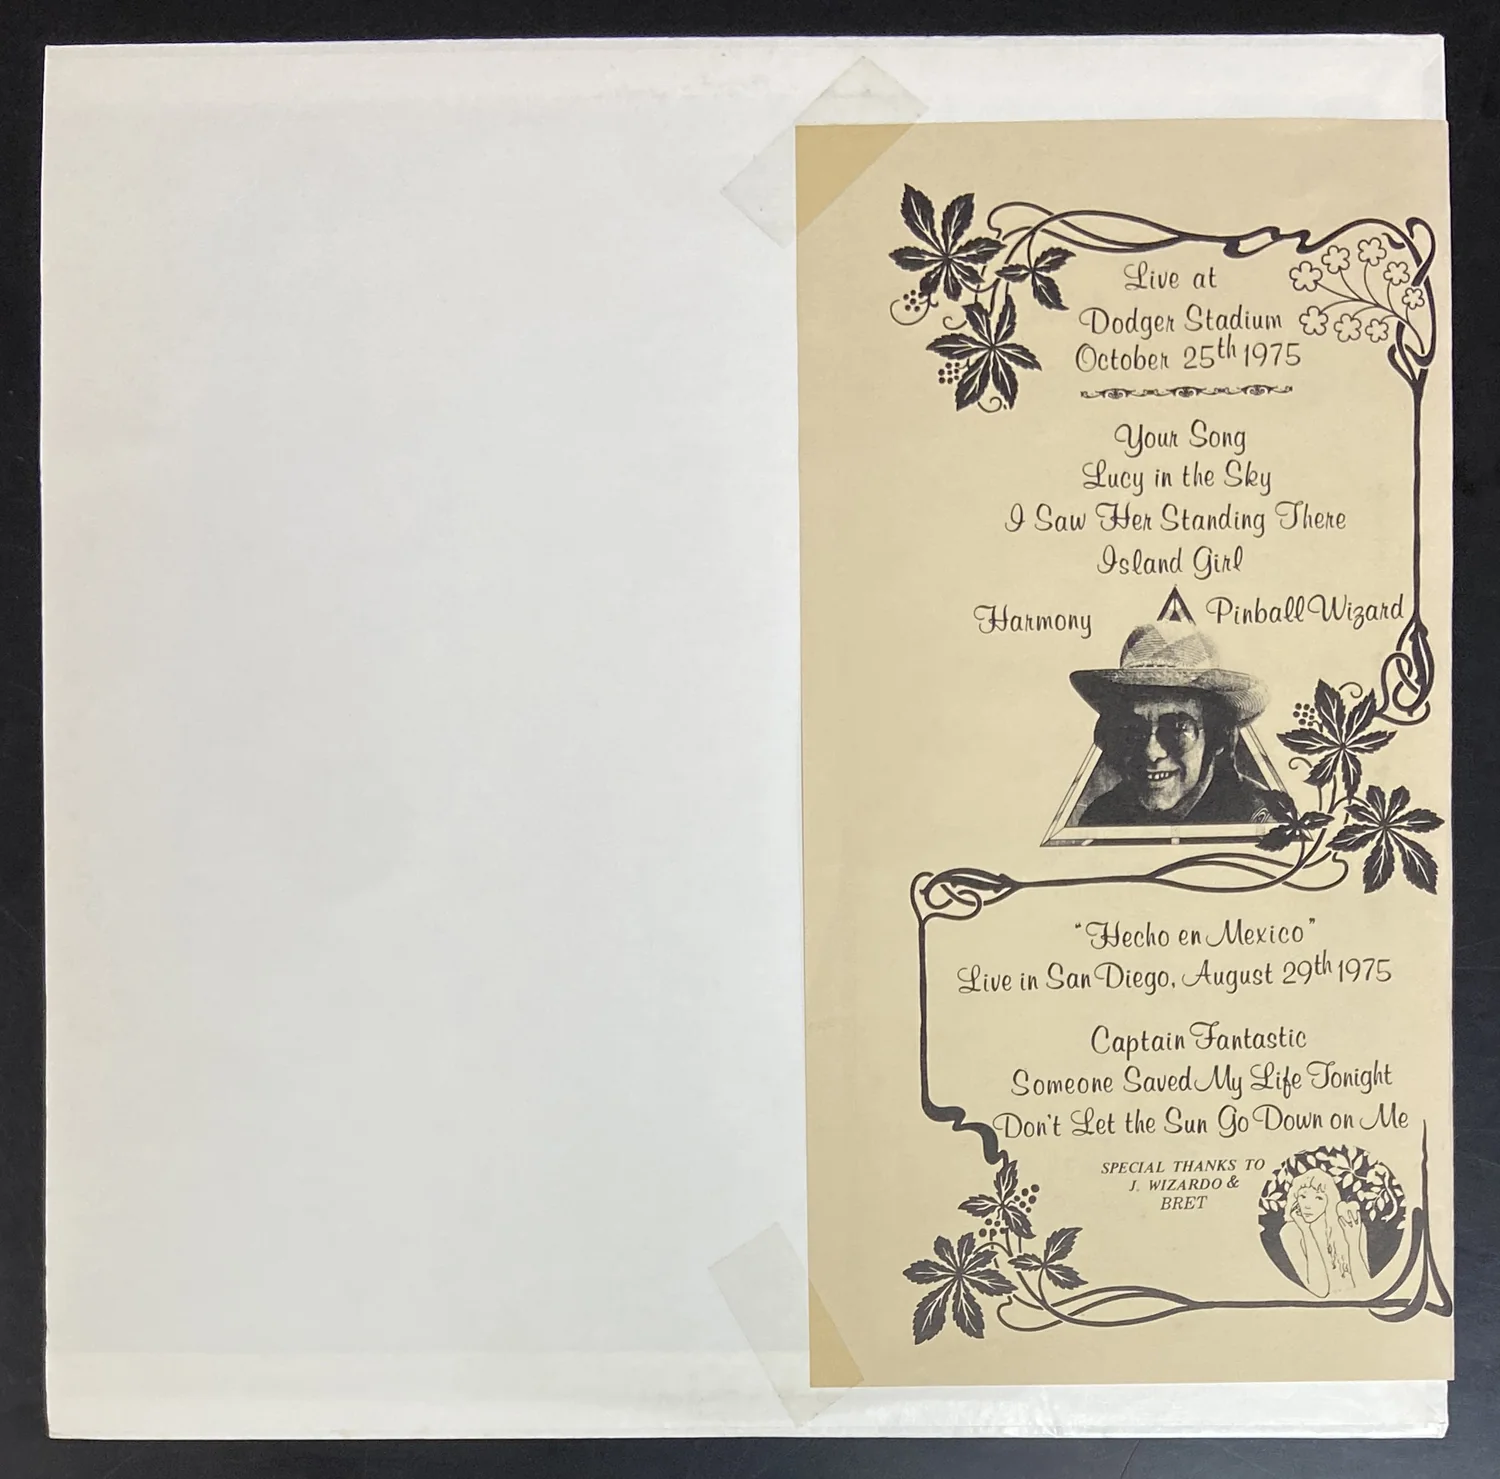 Live at
Dodger Stadium
October 25th 1975
Your Song
Lucy in the Sky
I Saw Her Standing There
Island Girl
Harmony Pinball Wizard
"Hecho en Mexico"
Live in San Diego, August 29th 1975
Captain Fantastic
Someone Saved My Life Tonight
Don't Let the Sun Go Down on Me
SPECIAL THANKS TO
J. WIZARDO &
BRET